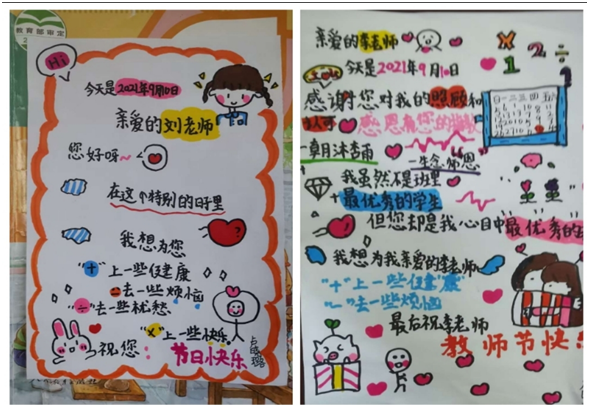 教育部审定
Hi
今天是2021年9月10日
亲爱的刘老师
您好呀~
在这个特别的日子里
我想为您
"+"上一些健康
"-"去一些烦恼
"÷"去一些忧愁
"×"上一些快乐
祝您
节日快乐
亲爱的李老师
今天是2021年9月10日
感谢您对我的照顾和
感恩有您的
一朝沐杏雨
一生念师恩
我虽然不是班里
最优秀的学生
但您却是我心目中最优秀的
我想为我亲爱的李老师
"+"上一些健康
"-"去一些烦恼
最后祝李老师
教师节快
× 2 ÷
1
日一二三四五